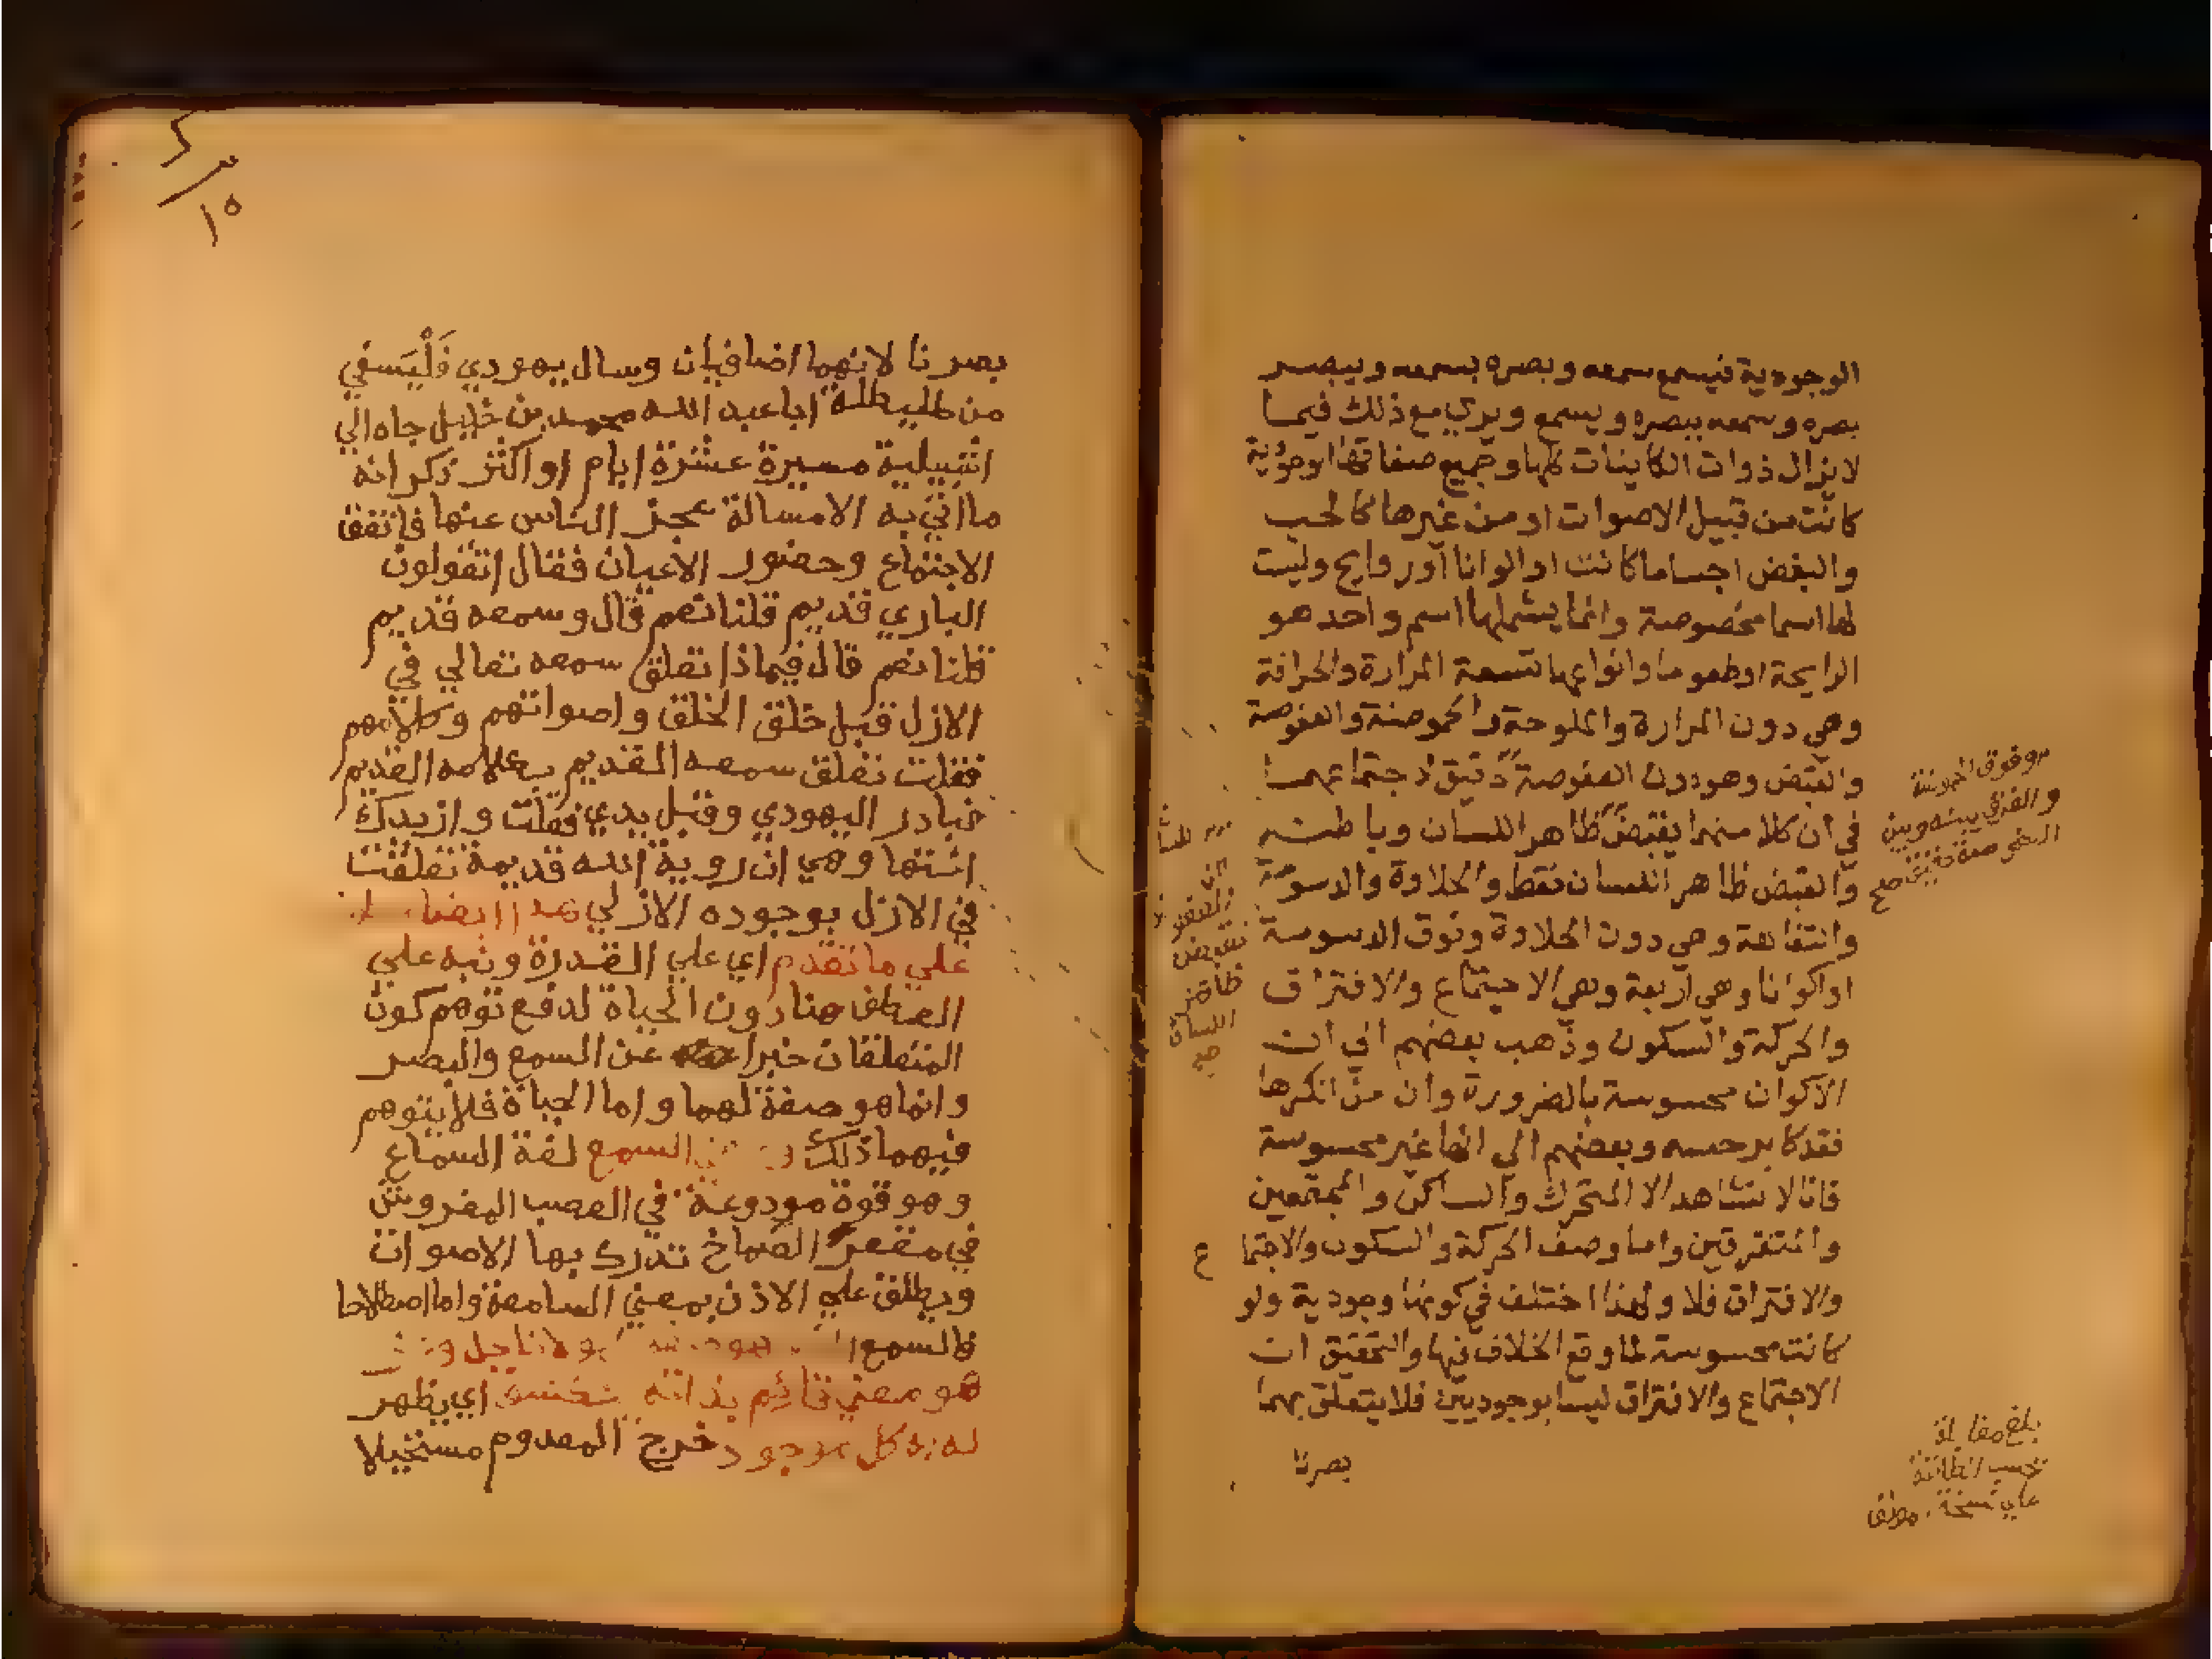 الوجودية فيسمع سمعه وبصره بسمعه ويبصر
بصره وسمعه ببصره ويسمع ويري مع ذلك فيما
لا يزال ذوات الكاينات كلها وجميع صفاتها الوجودية
كانت من قبيل الاصوات او من غيرها كالحب
والبغض اجساما كانت او الوانا او روايح وليست
لها اسما مخصوصة وانما يشملها اسم واحد هو
الرايحة او طعوما وانواعها تسعة المرارة والحرافة
وهي دون المرارة والملوحة والحموضة والعفوصة
والقبض وهو دون العفوصة
في ان كلا منهما يقبض ظاهر اللسان وباطنه
والقبض ظاهر اللسان فقط والحلاوة والدسومة
والتفاهة وهي دون الحلاوة وفوق الدسومة
او اكوانا وهي اربعة وهي الاجتماع والافتراق
والحركة والسكون وذهب بعضهم الي ان
الاكوان محسوسة بالضرورة وان من انكرها
فقد كابر حسه وبعضهم الي انها غير محسوسة
فانا لا نشاهد الا المتحرك والساكن والمجتمعين
والمتفرقين واما وصف الحركة والسكون والاجتما ع
والافتراق فلا ولهذا اختلف في كونها وجودية ولو
كانت محسوسة لما وقع الخلاف فيها والتحقيق ان
الاجتماع والافتراق ليسا بوجوديين فلا يتعلق بهما
بصرنا
وفوق الحموضة
والفرق بينه وبين
العفوصة
يقبض
ظاهر
اللسان
صح
بلغ مقابلة
بحسب الطاقة
علي نسخة مولفه
١٥
بصرنا لانهما اضافيان وسال يهودي فَلْيَسفي
من طليطلة ابا عبد الله محمد بن خليل جاه الي
اشبيلية مسيرة عشرة ايام او اكثر ذكر انه
ما اتي به الا مسالة عجز الناس عنها فاتفق
الاجتماع وحضور الاعيان فقال اتقولون
الباري قديم قلنا نعم قال وسمعه قديم
قلنا نعم قال فيماذا تعلق سمعه تعالي في
الازل قبل خلق الخلق واصواتهم وكلامهم
فقلت تعلق سمعه القديم بكلامه القديم
فبادر اليهودي وقبل يدي فقلت وازيدك
اختها وهي ان روية الله قديمة تعلقت
في الازل بوجوده الازلي
علي ما تقدم اي علي القدرة ونبه علي
العطف هنا دون الحياة لدفع توهم كون
المتعلقان خبرا عن السمع والبصر
وانما هو صفة لهما واما الحياة فلا يتوهم
فيهما ذلك السمع لغة السماع
وهو قوة مودوعة في العصب المفروش
في مقعر الصماخ تدرك بها الاصوات
ويطلق علي الاذن بمعني السامعة واما اصطلاحا
فالسمع
هو معني قائم بذاته اي يظهر
له به كل موجود خرج المعدوم مستحيلا